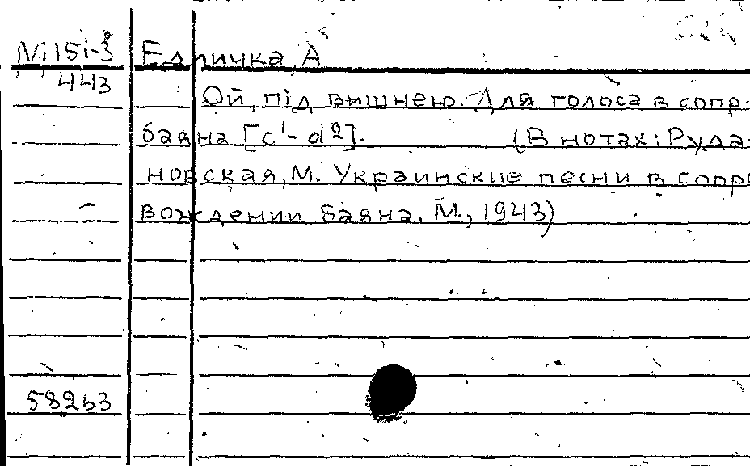 М151-3 Едличка, А
443
Ой, під вишнею. Для голоса в сопр.
баяна [c¹- d²]. (В нотах: Руда-
новская, М. Украинские песни в сопро
вождении баяна. М., 1943)
58263